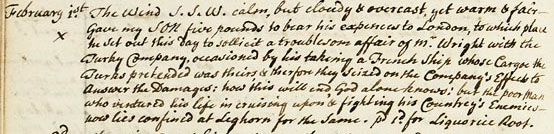 February 1.st The Wind S. S. W. calm, but cloudy & overcast, yet warm & fair
Gave my SON five pounds to bear his expences to London, to which place
x he set out this day to sollicit a troublesom affair of m.r Wright with the
Turky Company, occasioned by his taking a French Ship whose Cargoe the
Turks pretended was theirs & therfore they seized on the Company's Effects to
Answer the Damages: how this will end God alone knows: but the poor man
who ventured his life in cruising upon & fighting his Countrey's Enemies
now lies confined at Leghorn for the Same. p.d 1.s for Liquorice Root.